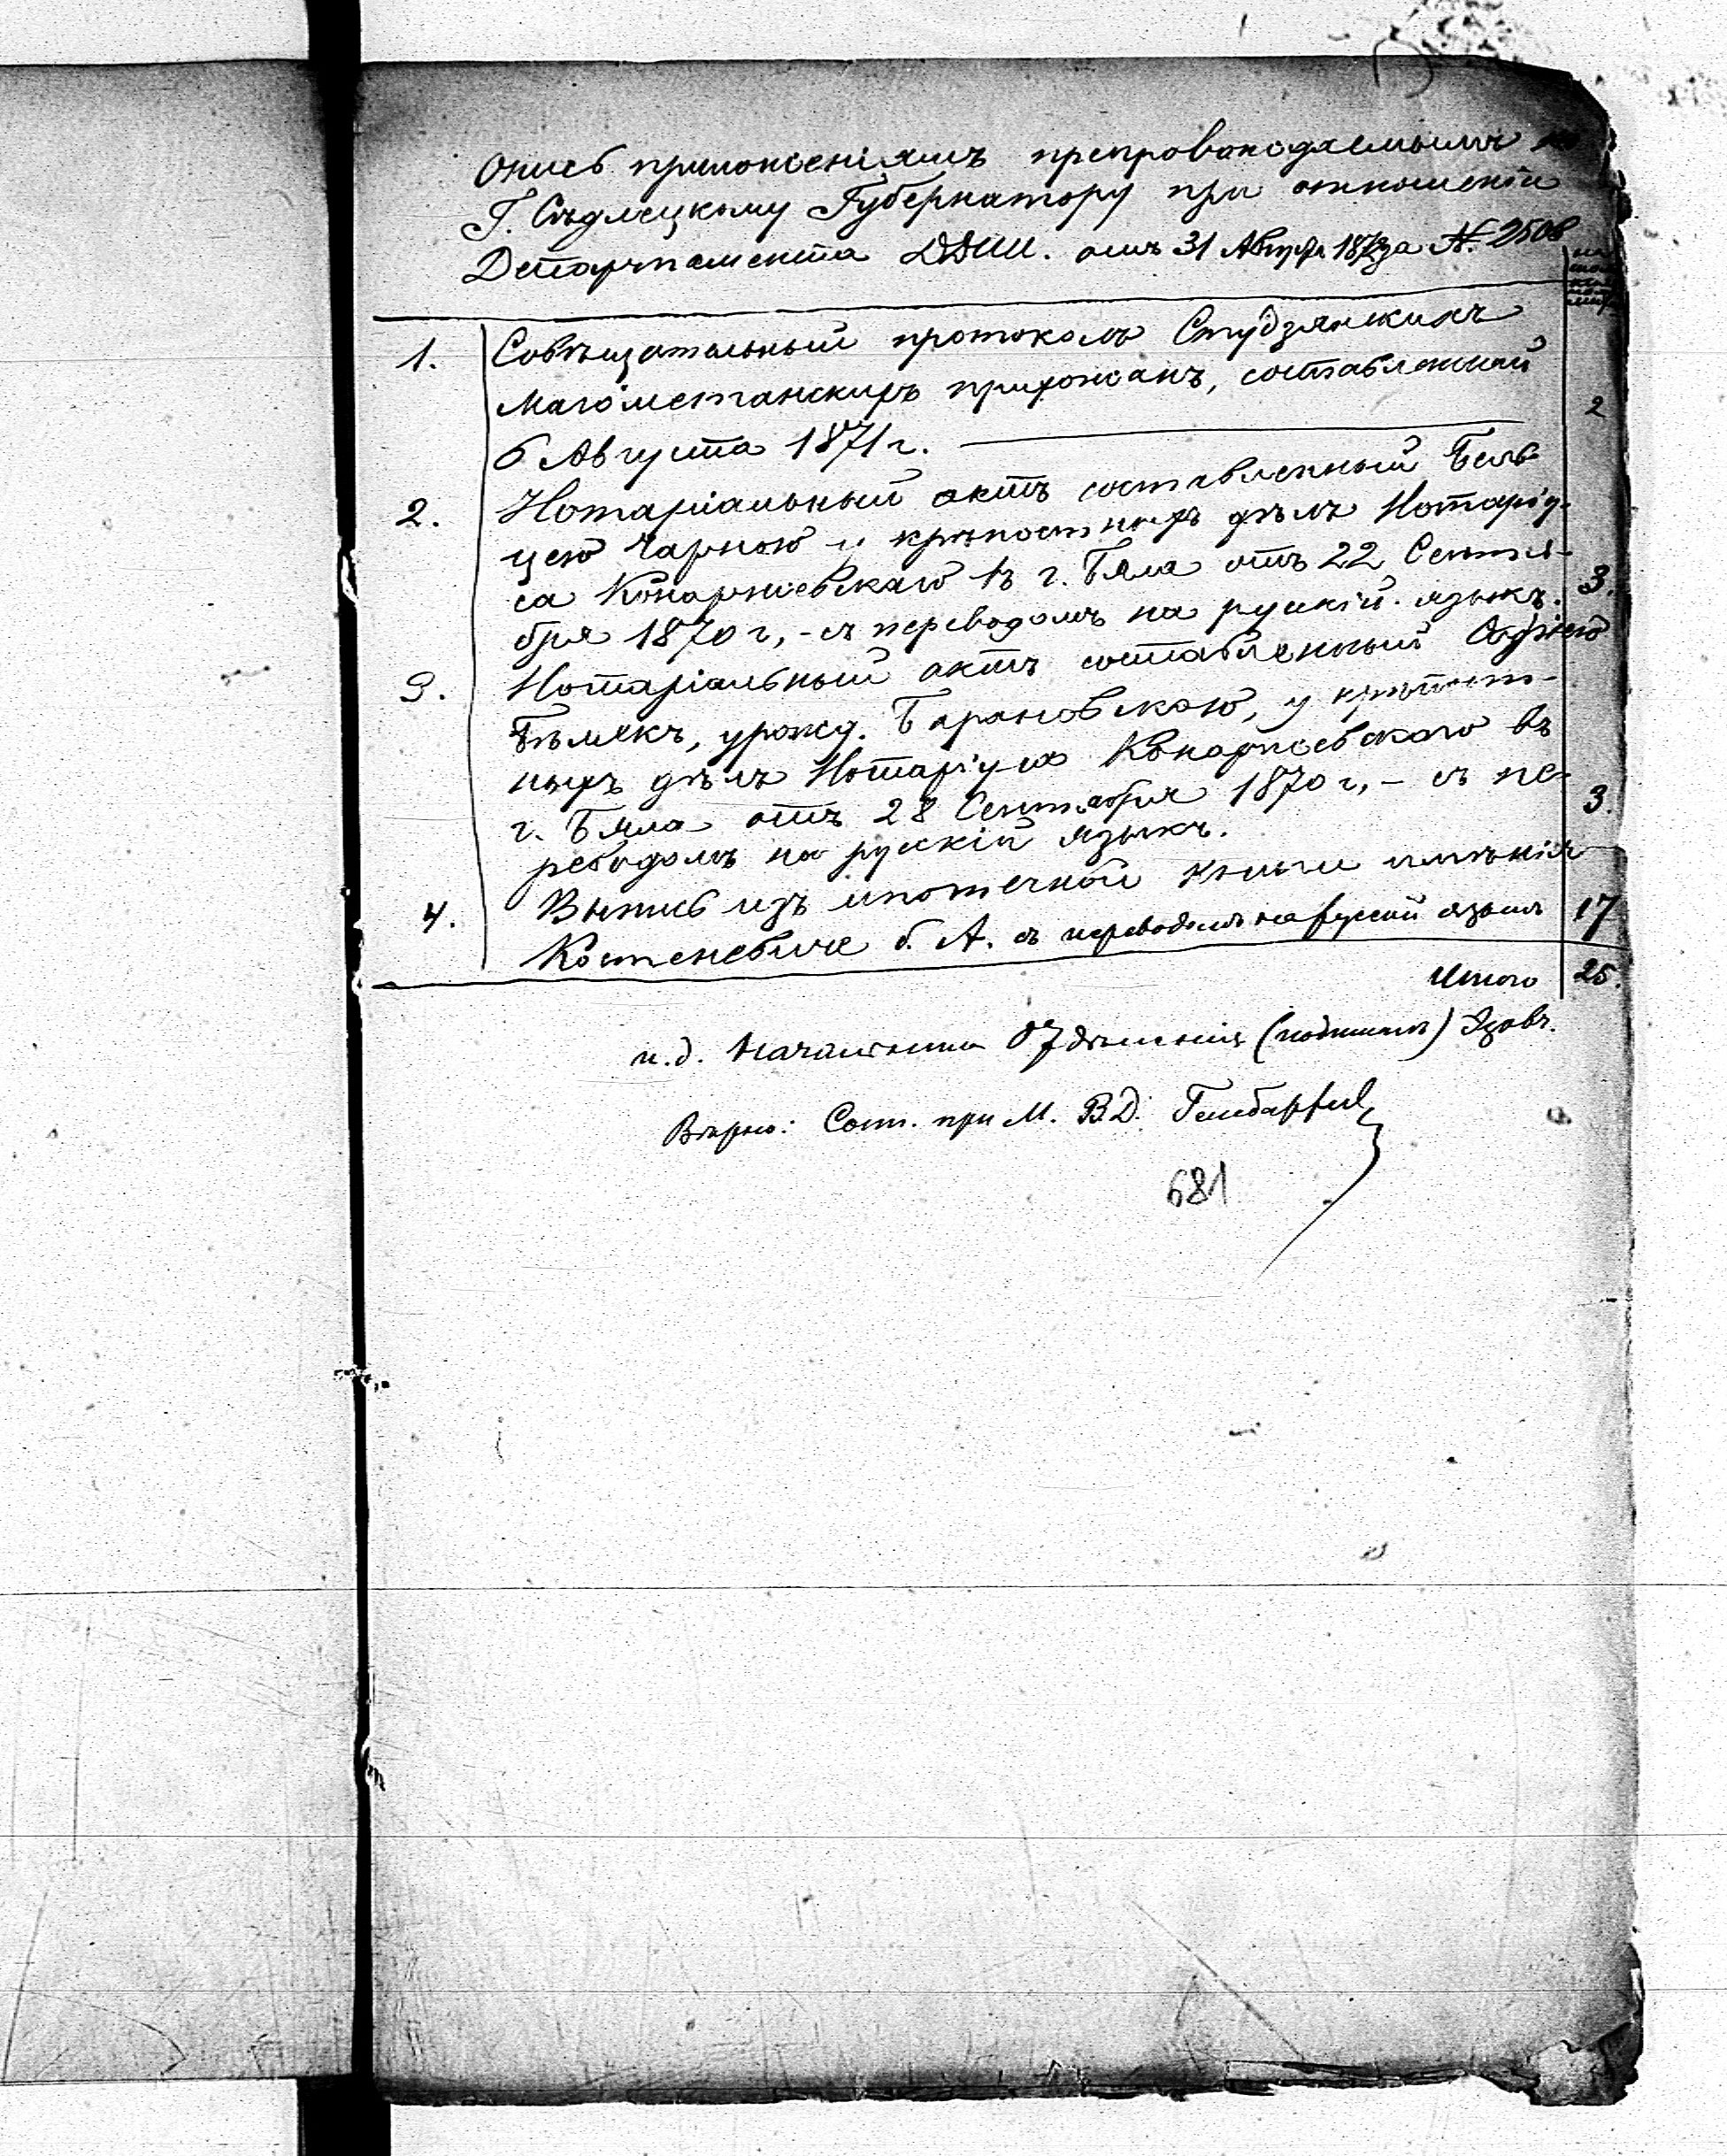 Опись приложеніямъ препровождаемымъ къ
Г. Сѣдлецкому Губернатору при отношеніи
Департамента ДДИИ. отъ 31 Августа 1872 за № 2508
1. Совѣщательный протоколъ Студзянскихъ
Магометанскихъ прихожанъ, составленный
6 Августа 1871 г. 2
2. Нотаріальный актъ составленный
цею Чарною у крѣпостныхъ дѣлъ Нотаріу-
са Конаржевскаго въ г. Бяла отъ 22 Сентя- 3.
бря 1870 г, - съ переводомъ на рускій языкъ.
3. Нотаріальный актъ составленный Софіею
Бѣлякъ, урожд. Барановскою, у крѣпост-
ныхъ дѣлъ Нотаріуса Конаржевскаго въ
г. Бяла отъ 28 Сентября 1870 г, - съ пе- 3.
реводомъ на рускій языкъ.
4. Выпись изъ ипотечной книги имѣнія
Костеневиче б. А. съ переводомъ на руский языкъ 17
Итого 25.
и. д. Начальника Отдѣленія (подписалъ)
Вѣрно: при М. В. Д.
681